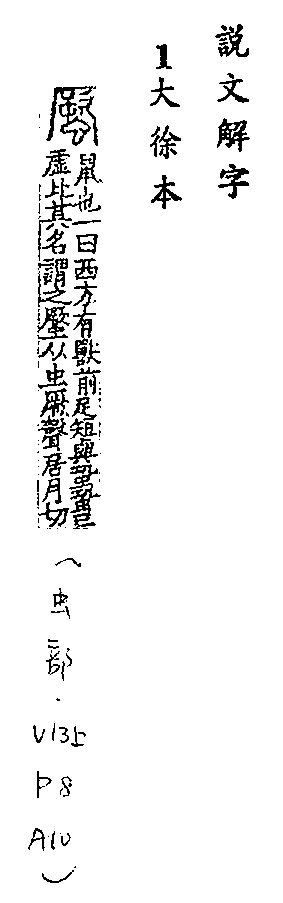 説文解字
1大徐本
蟨
鼠也一曰西方有獸前足短與蛩蛩巨
虛比其名謂之蟨从虫厥聲居月切
(虫部.V13上P8A10)